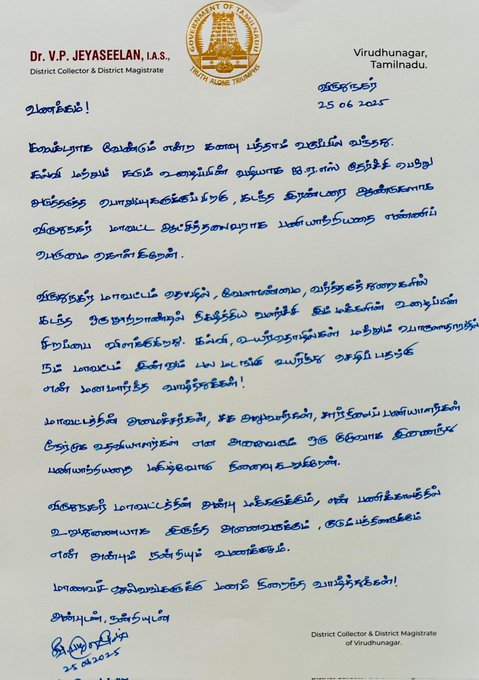 Dr. V.P. JEYASEELAN, I.A.S.,
District Collector & District Magistrate
GOVERNMENT OF TAMILNADU
TRUTH ALONE TRIUMPHS
Virudhunagar,
Tamilnadu.
விருதுநகர்
25 06 2025
வணக்கம்!
கலெக்டராக வேண்டும் என்ற கனவு பத்தாம் வகுப்பில் வந்தது.
கல்வி மற்றும் கடும் உழைப்பின் வழியாக ஐ.ஏ.எஸ் தேர்ச்சி பெற்று
அடுத்தடுத்த பொறுப்புகளுக்குப்பிறகு, கடந்த இரண்டரை ஆண்டுகளாக
விருதுநகர் மாவட்ட ஆட்சித்தலைவராக பணியாற்றியதை எண்ணிப்
பெருமை கொள்கிறேன்.
விருதுநகர் மாவட்டம் தொழில், வேளாண்மை, வர்த்தகத்துறைகளில்
கடந்த ஒருநூற்றாண்டில் நிகழ்த்திய வளர்ச்சி இம் மக்களின் உழைப்பின்
சிறப்பை விளக்குகிறது. கல்வி, உயர்தொழில்கள் மற்றும் பொருளாதாரத்தில்
நம் மாவட்டம் இன்னும் பல மடங்கு உயர்ந்து செழிப்பதற்கு
என் மனமார்ந்த வாழ்த்துக்கள்!
மாவட்டத்தின் அமைச்சர்கள், சக அலுவலர்கள், சார்நிலைப் பணியாளர்கள்
நேர்முக உதவியாளர்கள் என அனைவரும் ஒரு குழுவாக இணைந்து
பணியாற்றியதை மகிழ்வோடு நினைவு கூறுகிறேன்.
விருதுநகர் மாவட்டத்தின் அன்பு மக்களுக்கும், என் பணிக்காலத்தில்
உறுதுணையாக இருந்த அனைவருக்கும், குடும்பத்தினருக்கும்
என் அன்பும் நன்றியும் வணக்கமும்.
மாணவச் செல்வங்களுக்கு மனம் நிறைந்த வாழ்த்துக்கள்!
அன்புடன், நன்றியுடன்
25 06 2025
District Collector & District Magistrate
of Virudhunagar.